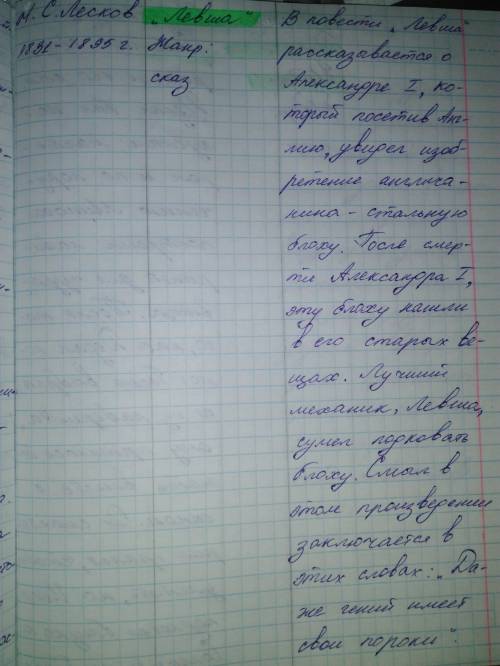 Н. С. Лесков
1831-1895 г.
„Левша"
Жанр:
сказ
В повести „Левша"
рассказывается о
Александре I, ко-
торый посетив Анг-
лию, увидел изоб-
ретение англича-
нина - стальную
блоху. После смер-
ти Александра I,
эту блоху нашли
в его старых ве-
щах. Лучший
механик, Левша,
сумел подковать
блоху. Смысл в
этом произведении
заключается в
этих словах: „Да-
же гений имеет
свои пороки".